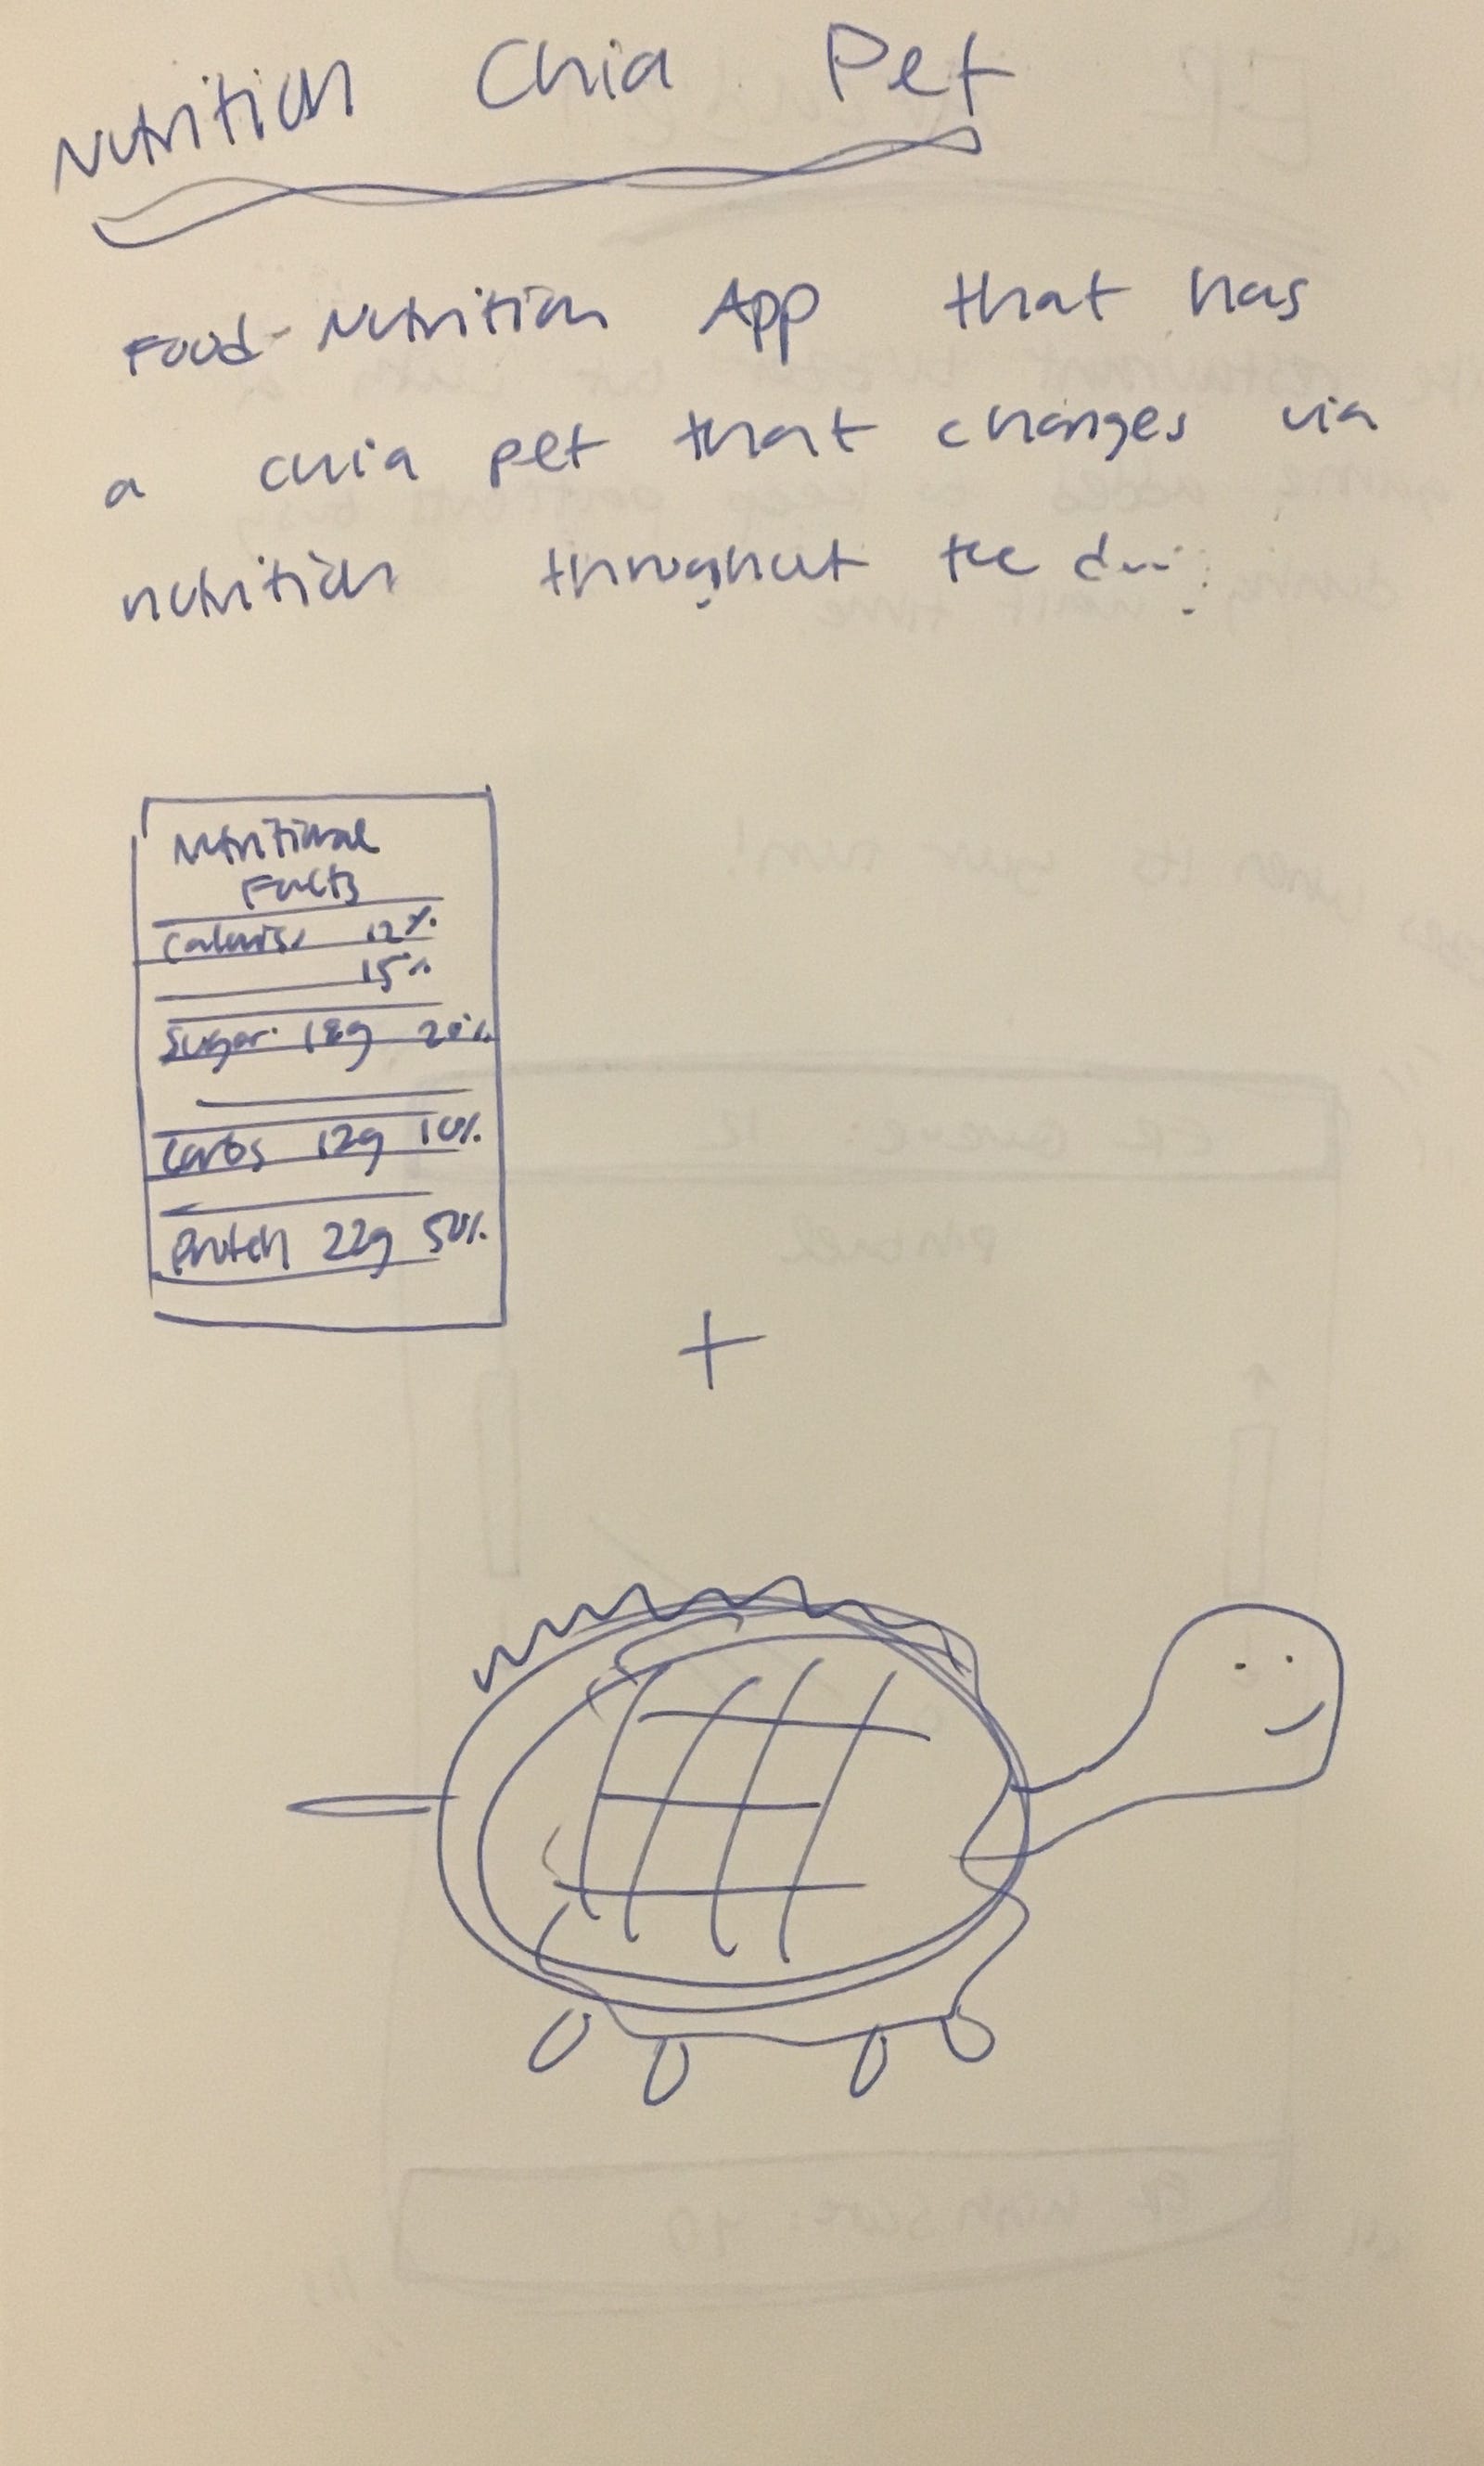 Nutrition Chia Pet
Food-Nutrition App that has
a chia pet that changes via
nutrition throughout the
Nutritional
Facts
Calories 12%
15%
Sugar 18g 20%
Carbs 12g 10%
Protein 22g 50%
+